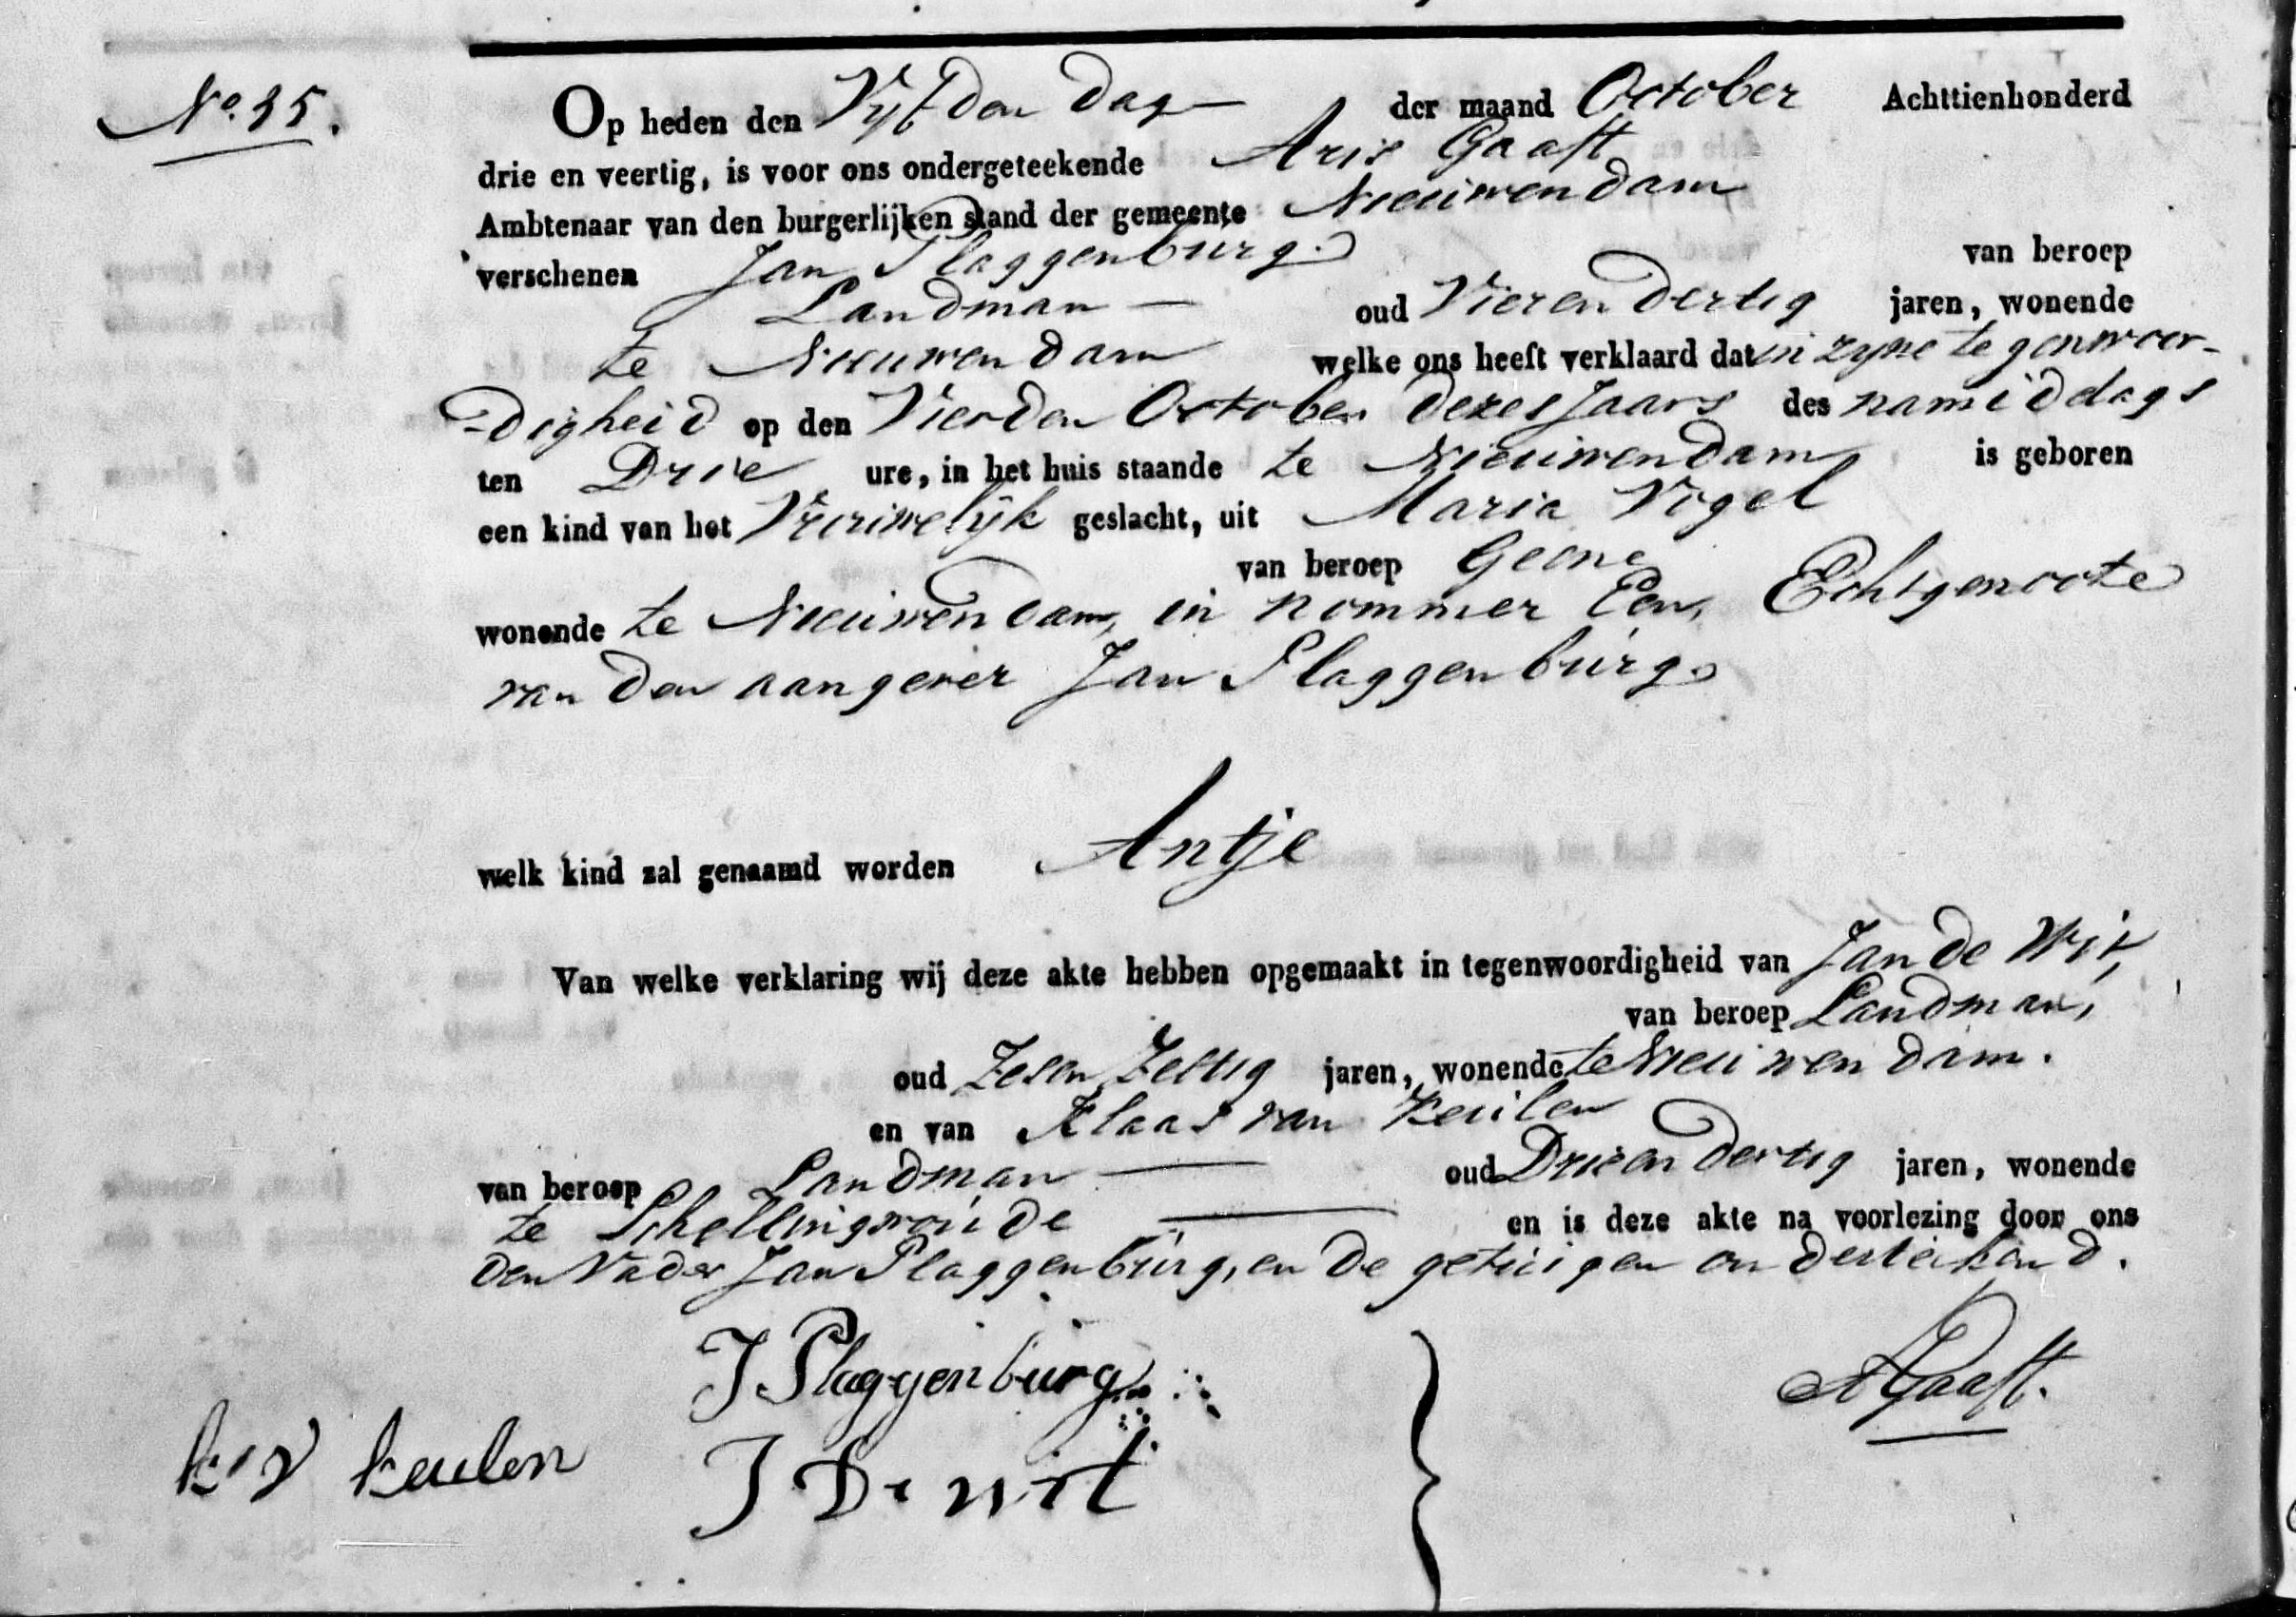 No. 35.
Op heden den Vijfden dag der maand October Achttienhonderd
drie en veertig, is voor ons ondergeteekende Aris Gaaft
Ambtenaar van den burgerlijken stand der gemeente Nieuwendam
verschenen Jan Plaggenburg van beroep
Landman — oud Vierendertig jaren, wonende
te Nieuwendam welke ons heeft verklaard dat in zyne tegenwoor-
-digheid op den Vierden October dezes Jaars des namiddags
ten Drie ure, in het huis staande te Nieuwendam is geboren
een kind van het Vrouwelyk geslacht, uit Maria Vogel
van beroep Geene
wonende te Nieuwendam, in nommer Een, Echtgenoote
van den aangever Jan Plaggenburg
welk kind zal genaamd worden Antje
Van welke verklaring wij deze akte hebben opgemaakt in tegenwoordigheid van Jan de Wit,
van beroep Landman,
oud Zesenzestig jaren, wonende te Nieuwendam.
en van Klaas van Keulen
van beroep Landman — oud Drieendertig jaren, wonende
te Schellingwoude — en is deze akte na voorlezing door ons
den Vader Jan Plaggenburg, en de getuigen onderteekend.
J Plaggenburg
A Gaaft.
k v keulen
J De wit